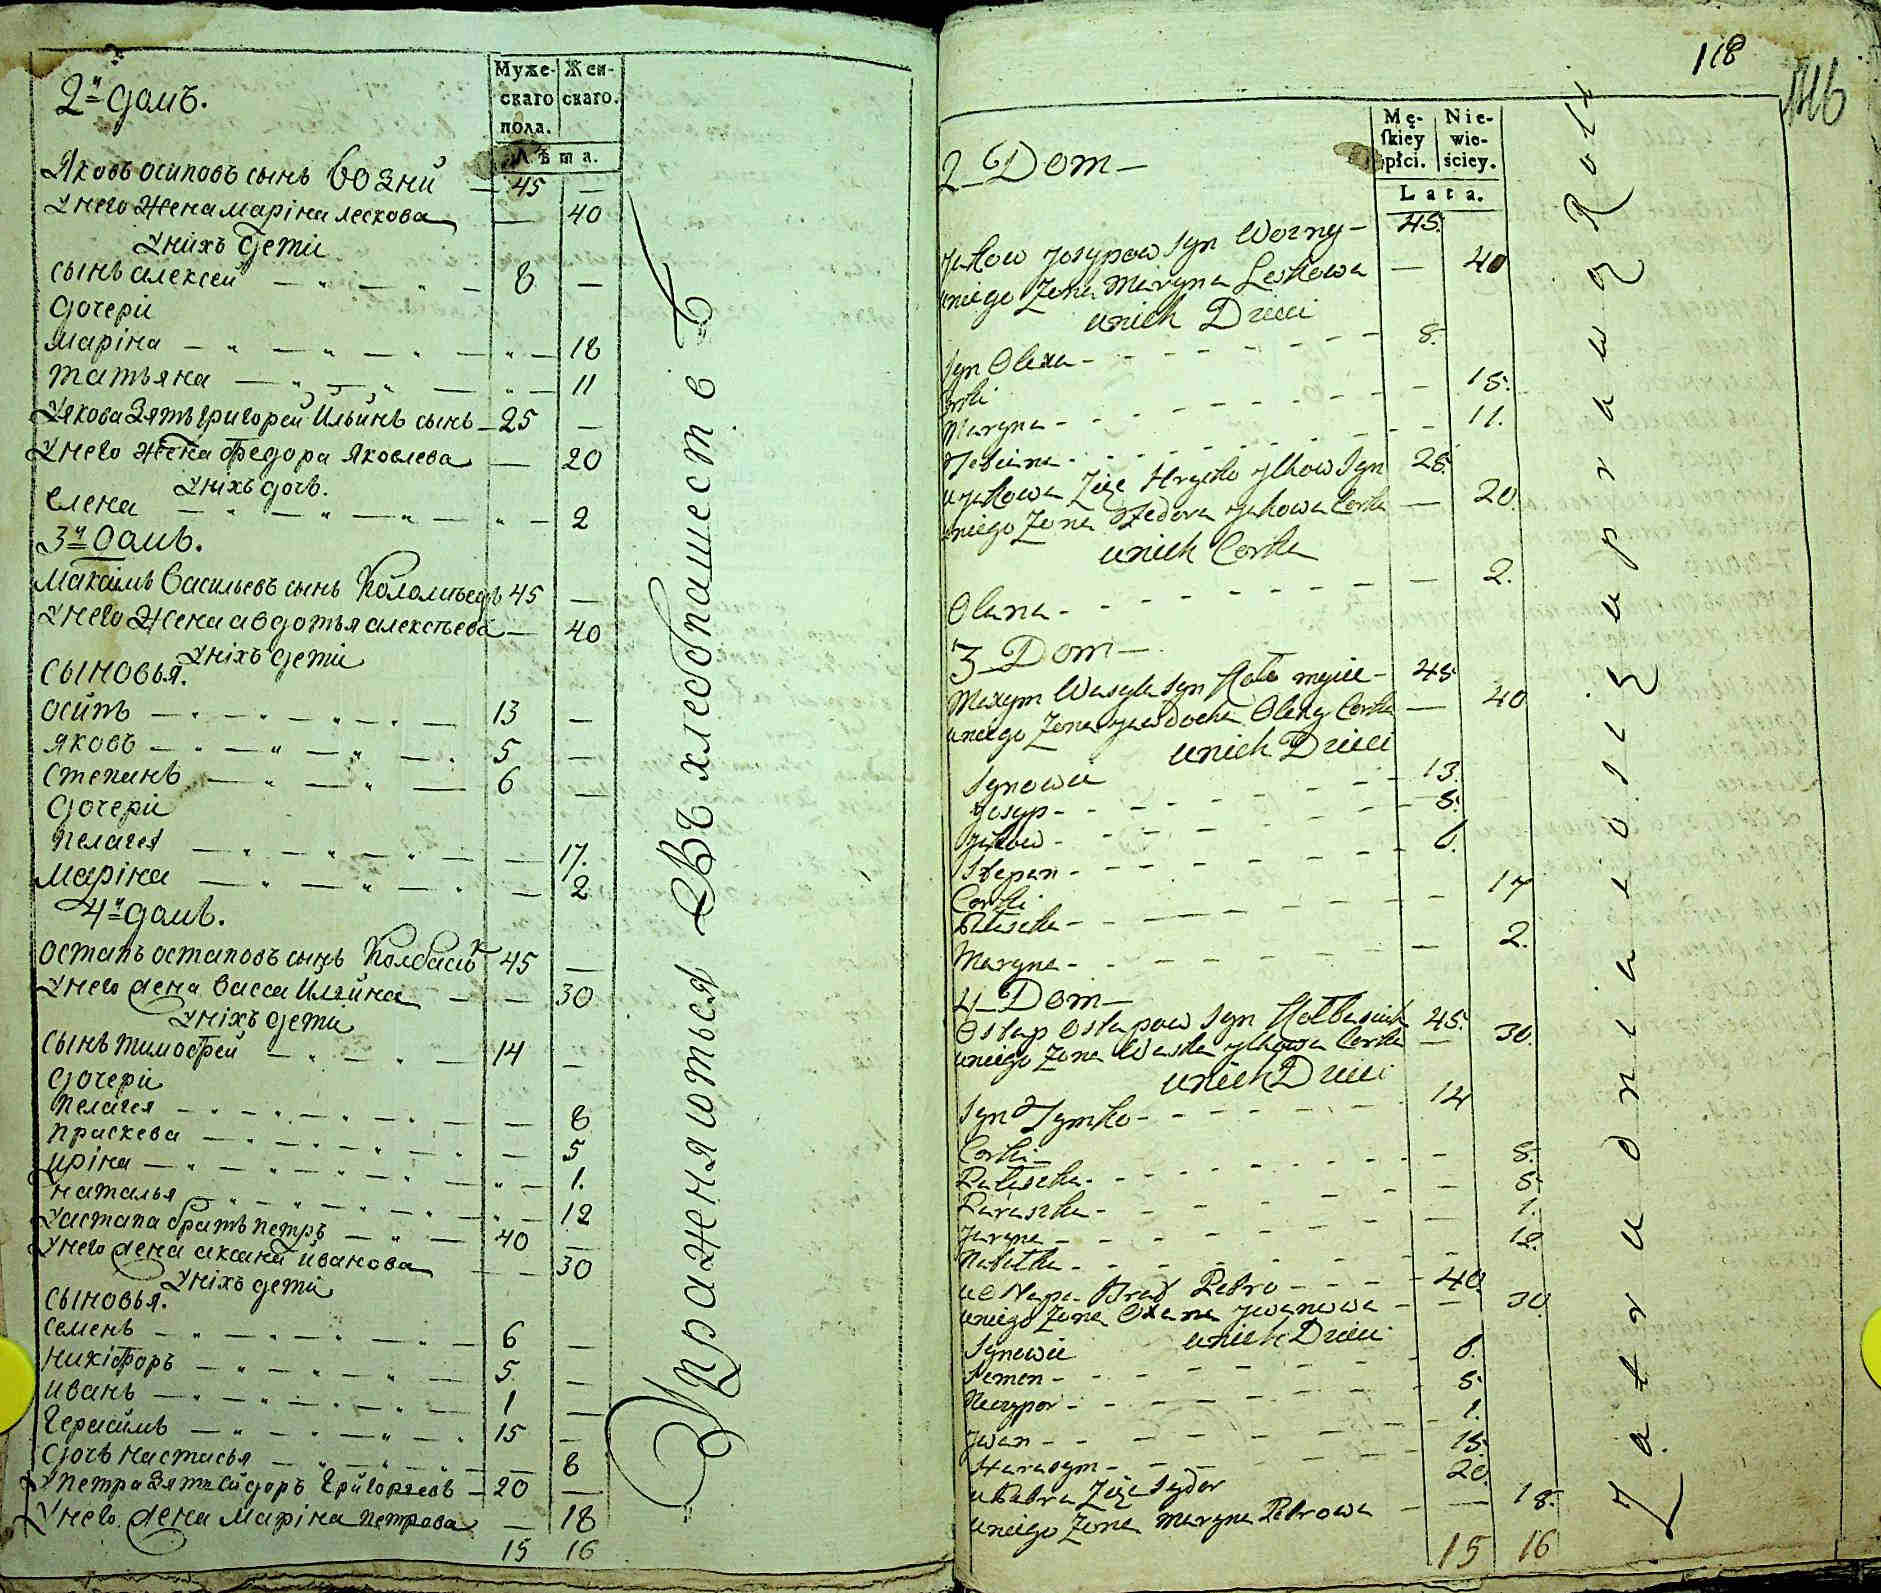 2й домъ.
Муже-
скаго
пола.
Жен-
скаго.
Лѣта.
Яковъ осиповъ сынъ Возній — 45 —
Унего жена маріна лескова — 40
Уніхъ детіи
сынъ алексей — 8 —
дочеріи
маріна — 18
татьяна — 11
Уякова зять григорей ильинъ сынъ — 25 —
Унего жена федора яковлева — 20
Уніхъ дочь.
елена — 2
3й домъ.
максимъ васильевъ сынъ Коломыецъ 45 —
Унего жена авдотья алексѣева — 40
Уніхъ детіи
сыновья.
осипъ — 13 —
яковъ — 5 —
степанъ — 6 —
дочеріи
пелагея — 17.
маріна — 2
4й домъ.
остапъ остаповъ сынъ Колбасюк 45 —
Унего жена васса Илӥина — 30
Уніхъ детіи
сынъ тимофей — 14 —
дочеріи
пелагея — 8
праскева — 5
иріна — 1.
наталья — 12
Уастапа братъ петръ — 40 —
Унего жена аксанӥа иванова — 30
Уніхъ детіи
сыновья.
семенъ — 6 —
никіфоръ — 5 —
иванъ — 1 —
герасимъ — 15 —
дочь настасья — 8
Упетра зять сидоръ григорьевъ — 20 —
Унего жена маріна петрова — 18
15 16
Упраженяються Въ хлебопашествѣ
118
2 Dom —
Mę-
skiey
płci.
Nie-
wie-
ściey.
Lata.
Jakow Josypow Syn Wozny — 45.
uniego Zona Maryna Leskowa — 40
unich Dzieci
Syn Olexa — 8.
Corki
Maryna — 18.
Tatiana — 11.
u Jakowa Zięć Hrycko Ilkow Syn 25.
uniego Zona Fedora Jakowa Corka — 20.
unich Corka
Olena — 2.
3 Dom —
Maxym Wasyla Syn Kołomyiec — 45
uniego Zona Jawdocha Olexy Corka — 40
unich Dzieci
Synowie
Josyp — 13.
Jakow — 5.
Stepan — 6.
Corki
Pałaszka — 17
Maryna — 2.
4 Dom —
Ostap Ostapow Syn Kołbasiuk 45.
uniego Zona Waska Ilkowa Corka — 30.
unich Dzieci
Syn Tymko — 14
Corki —
Pałaszka — 8.
Paraszka — 5.
Jaryna — 1.
Natałka — 12.
u Ostapa Brat Petro — 40.
uniego Zona Oxana Iwanowa — 30
unich Dzieci
Synowie
Semen — 6.
Neczypor — 5.
Iwan — 1.
Harasym — 15.
u Petra Zięć Sydor 20.
uniego Zona Maryna Petrowa — 18.
15 16
Zatrudniaią się uprawą Roli